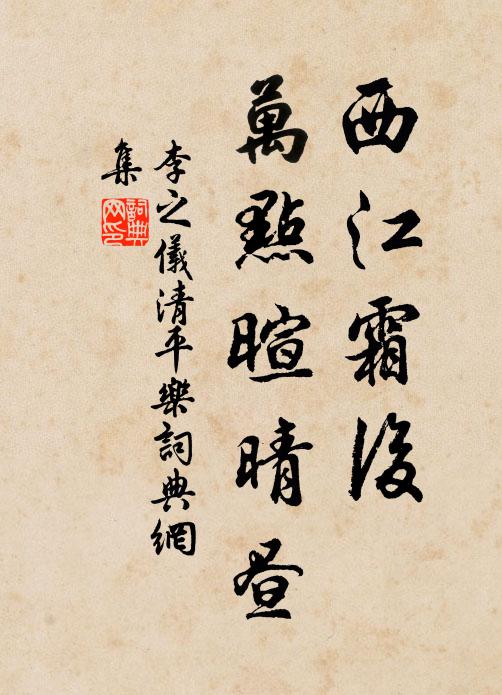 西江霜後
萬點暄晴晝
李之儀清平樂詞典網
集
詞典
网印